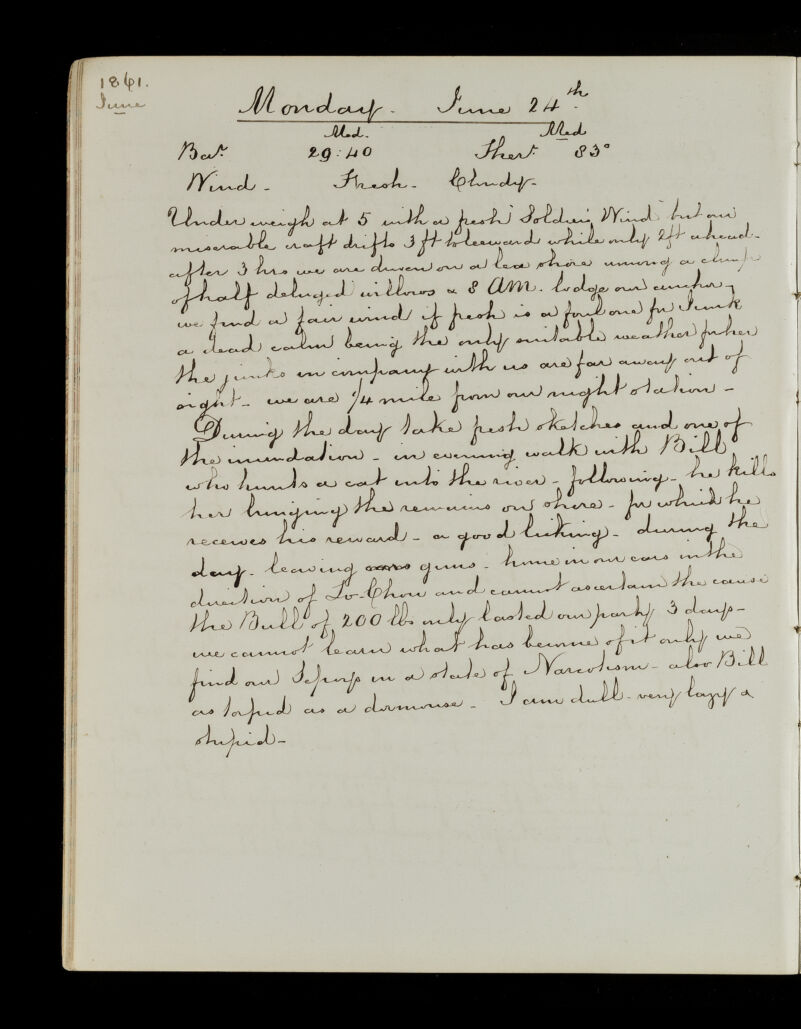 1861.
June
Monday. June 24th.
Med. Med
Bar. 29:40 Ther. 83°
Wind - Fresh - Cloudy -
Under weigh at 5 with a fresh "Soldiers Wind" but our
miserable craft drifts 3 ft to leeward while only 2ft ahead -
after 3 hrs we are driven on a lea shore among a clump
of half deluged willows & 8 AM. lodge our anchor -
we find a fair wind if fresh is a foul one for Junk
a dead calm being the only suitable weather for her
the junks in company with us are far away out of
sight - we are 1/4 mile from our night station -
During the day take fresh sketches and one of
the inundation - in evening walk with Bill
who hunts a cat into the river - following - he kills
her bringing the remains on shore - for which he
receives his reward - a good licking - during the
day - leaving guns - home in our ears in the
direction of Lo-Chow and cannot ascertain the cause
the Bull of 200 lbs only lasted our party 3 days -
we cannot learn what has become of it only we
find our Sepoys in a state of Narcotism - also Bill
as torpid as a dormouse - I am dull - very lazy &
stupid -